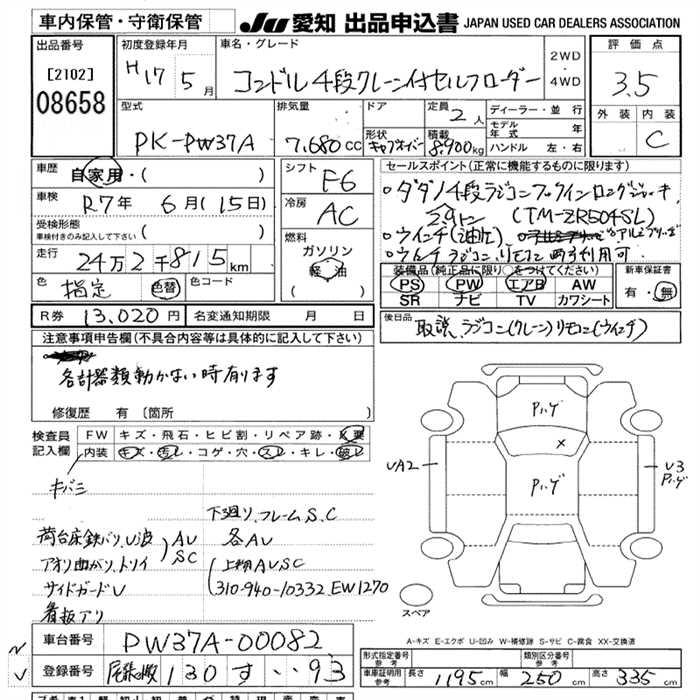 車内保管・守衛保管
JU 愛知 出品申込書 JAPAN USED CAR DEALERS ASSOCIATION
出品番号
[2102]
08658
初度登録年月
H17年 5月
車名・グレード
コンドル4段クレーン付セルフローダー
2WD・4WD
評価点
3.5
外装 内装
C
型式
PK-PW37A
排気量
7,680cc
ドア
形状
キャブオーバー
定員
2人
積載
8,900kg
ディーラー・並行
モデル年式 年
ハンドル 左・右
車歴
自家用・( )
車検
R7年 6月(15日)
受検形態
車検付きのみ記入して下さい ( )
走行
24万2千815km
色
指定
色替
色コード
シフト
F6
冷房
AC
燃料
ガソリン
軽油
( )
セールスポイント(正常に機能するものに限ります)
・ダダノ4段ラジコンフックインロングジャッキ
2.9トン (TM-ZR504SL)
・ウインチ(油圧)
・ウインチラジコン、リモコン両方利用可
装備品(純正品に限り○をつけてください)
PS PW エアB AW
SR ナビ TV カワシート
新車保証書
有・無
R券 13,020円
名変通知期限 月 日
後日品
取説、ラジコン(クレーン)リモコン(ウインチ)
注意事項申告欄(不具合内容等は具体的に記入して下さい)
各計器類動かない時有ります
修復歴 有 〔箇所 〕
検査員記入欄
FW キズ・飛石・ヒビ割・リペア跡・X要
内装 キズ・汚レ・コゲ・穴・スレ・キレ・破レ
キバミ
下廻り、フレームS.C
荷台床鉄バリ、U波
アオリ曲がり、トソイ
AU
SC
各AU
サイドガードU
上物AUSC
(310-940-10332 EW1270
看板アリ
Pハゲ
X
Pハゲ
UA2
U3
Pハゲ
スペア
A-キズ E-エクボ U-凹み W-補修跡 S-サビ C-腐食 XX-交換済
車台番号
PW37A-00082
登録番号
尾張小牧 130 す ・・93
形式指定番号
参考
類別区分番号
参考
車庫証明用
参考
長さ 1195cm 幅 250cm 高さ 335cm